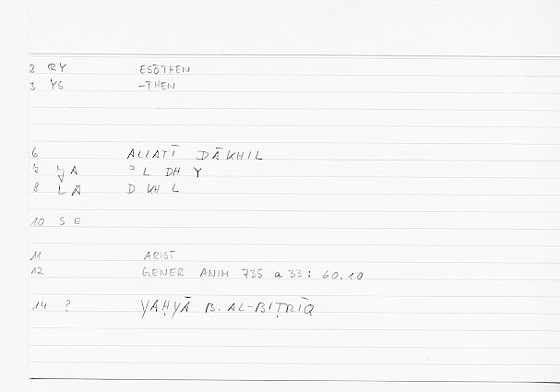 2 RY ESŌTHEN
3 YS -THEN
6 ALLATĪ DĀKHIL
7 YA ʾL DH Y
8 LA D KH L
10 S E
11 ARIST
12 GENER ANIM 735 a 33 : 60.10
14 ? YAḤYĀ B. AL-BIṬRĪQ